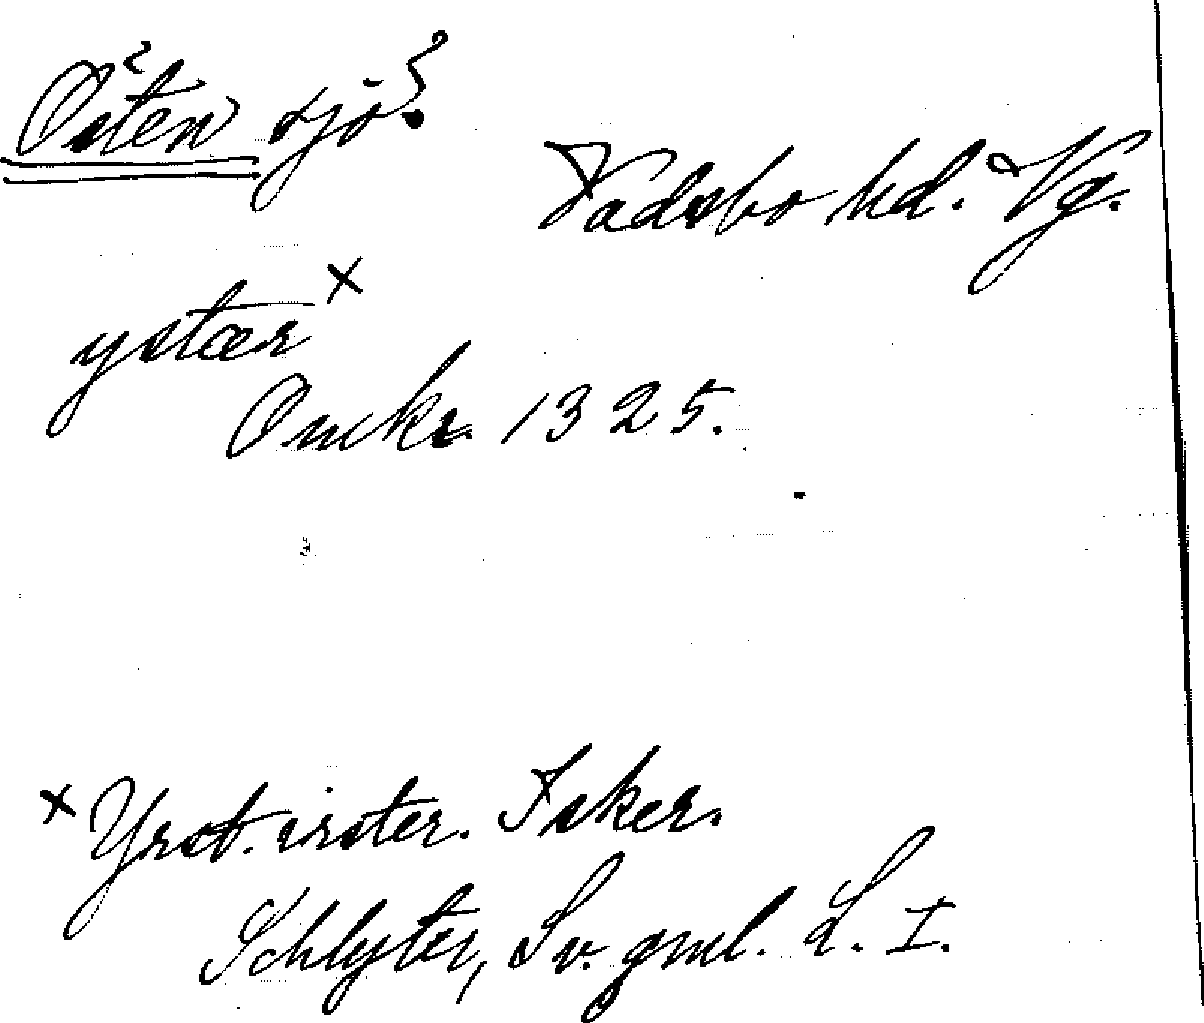 Östen sjö?
Vadsbo hd. Vg.
ystær x
Omkr. 1325.
x Yrst. irster. Isker.
Schlyter, Sv. gml. L. I.